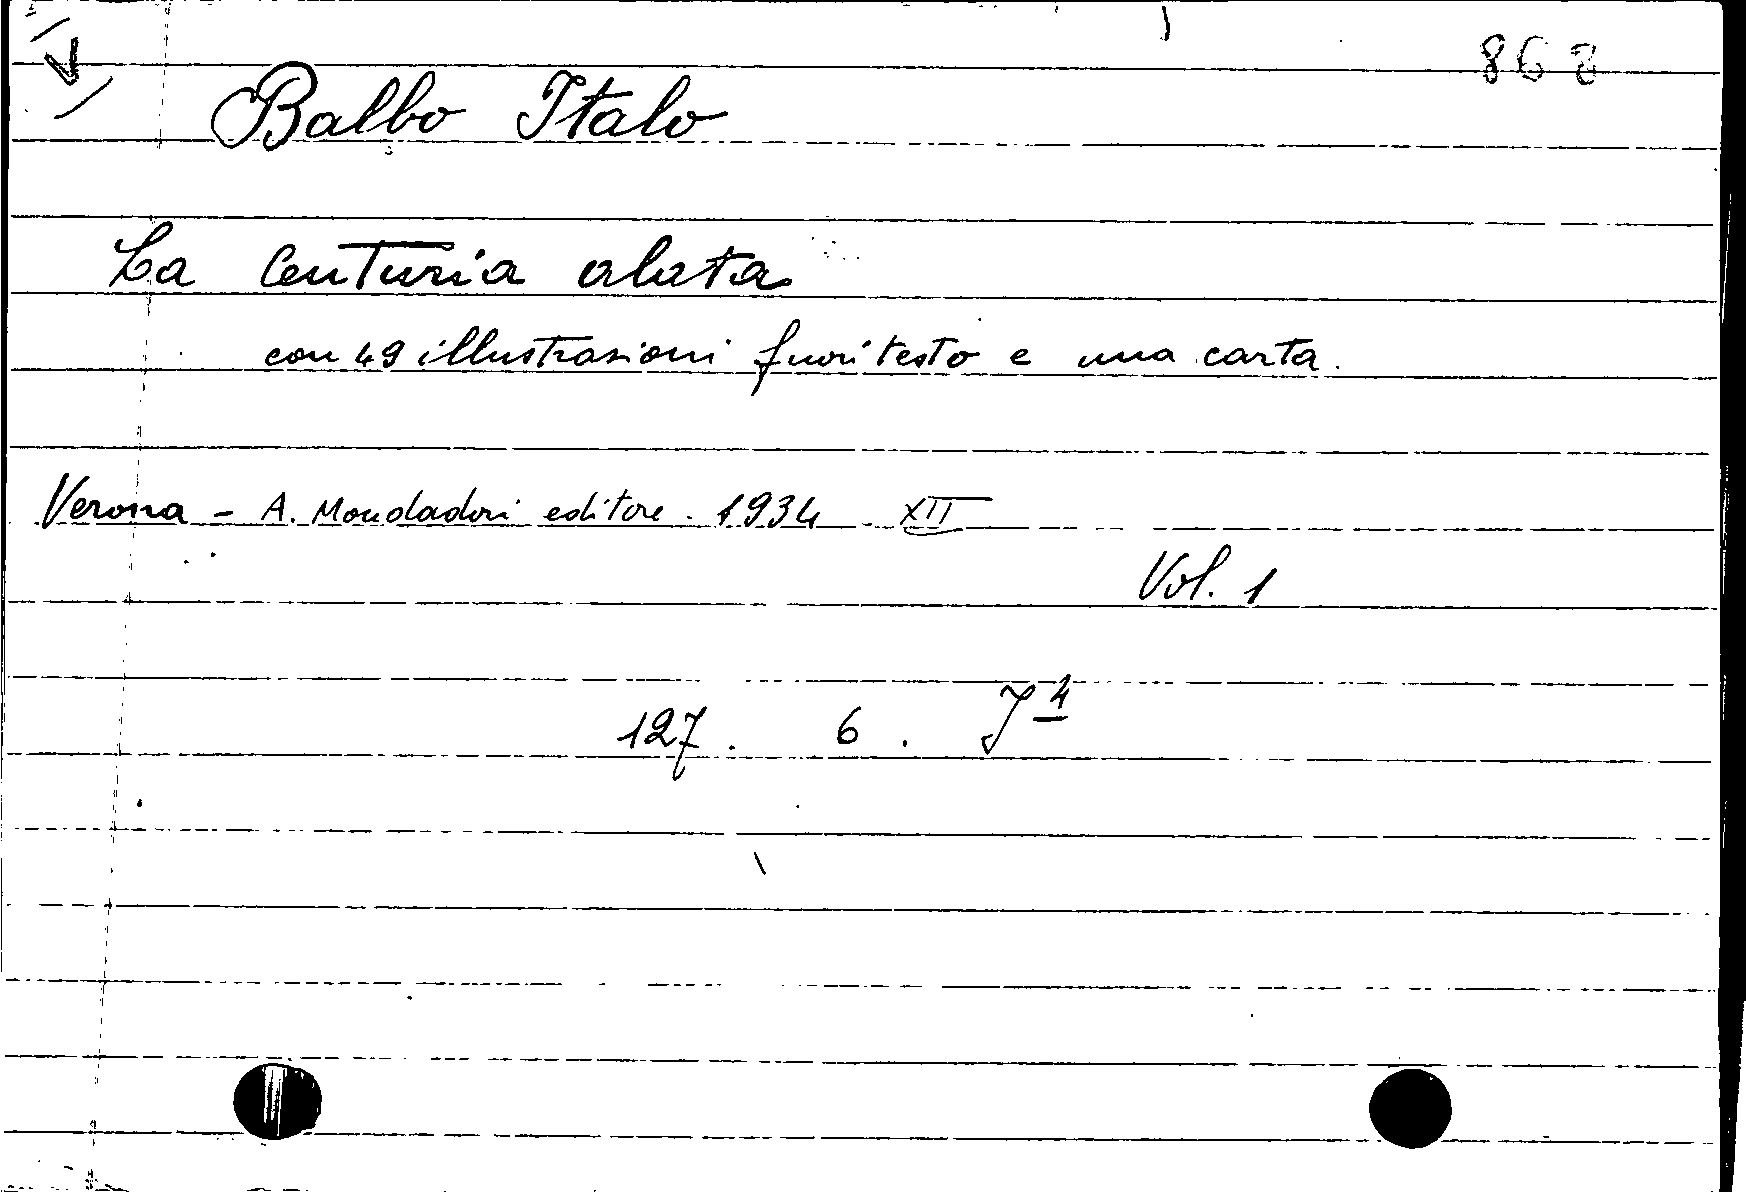 868
Balbo Italo
La Centuria alata
con 49 illustrazioni fuori testo e una carta.
Verona - A. Mondadori editore. 1934 XII
Vol. 1
127. 6. J 4